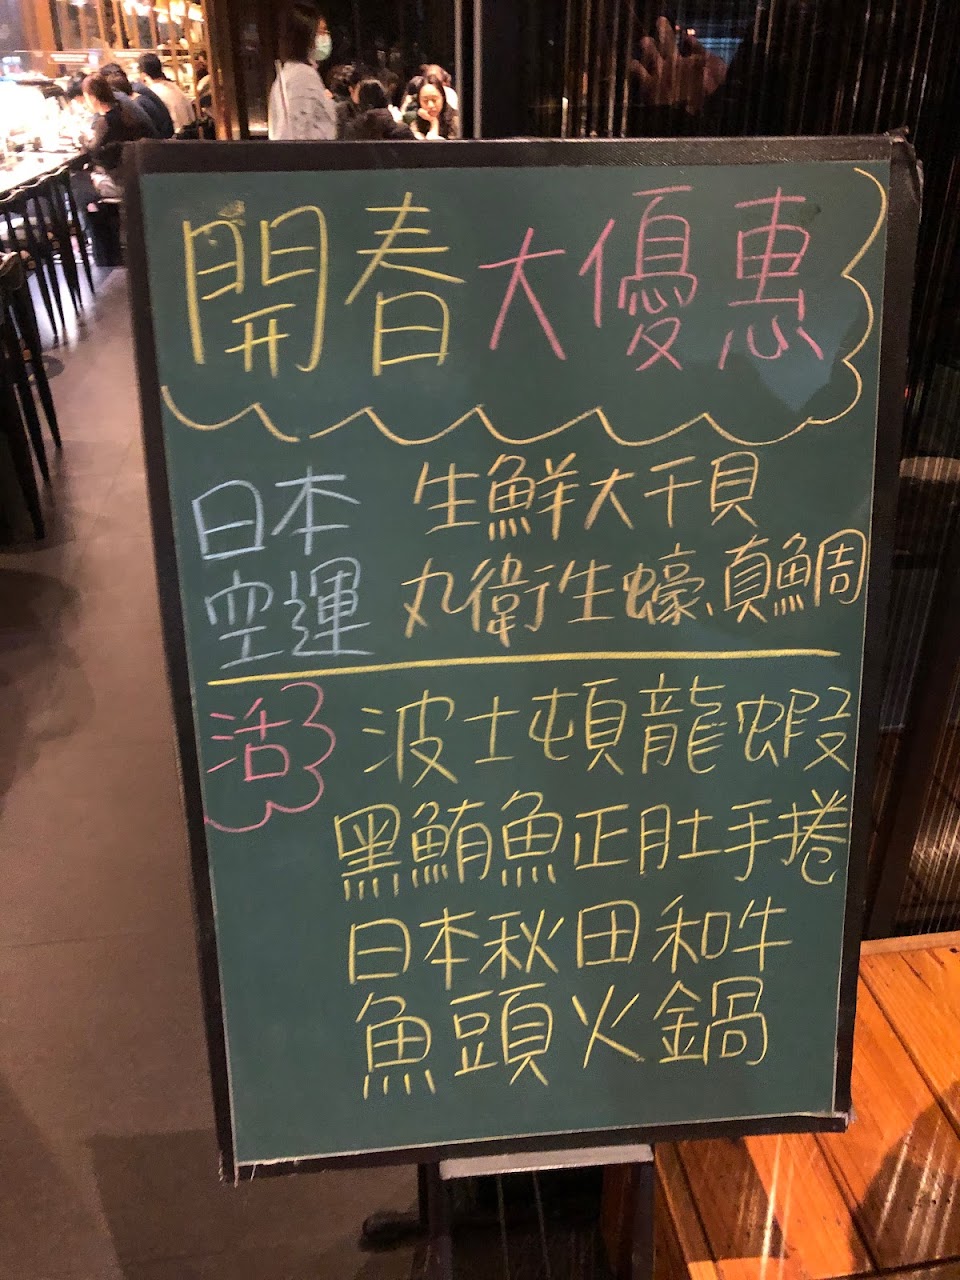 開春大優惠
日本 生鮮大干貝
空運 丸衛生蠔、真鯛
活 波士頓龍蝦
黑鮪魚正肚手捲
日本秋田和牛
魚頭火鍋